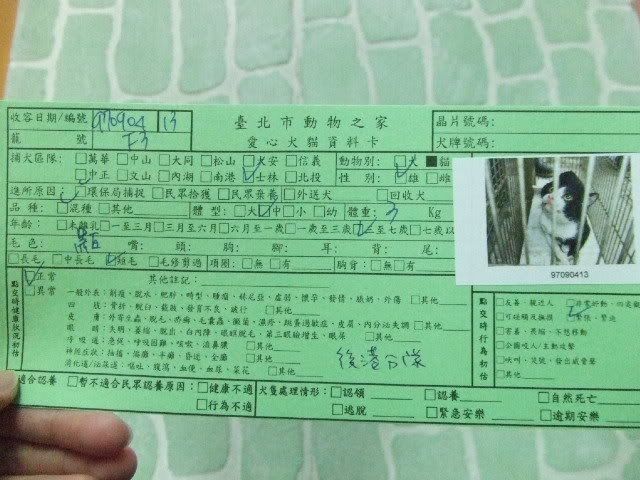 收容日期/編號 970904 13 臺北市動物之家 晶片號碼:
籠 號 F3 愛心犬貓資料卡 犬牌號碼:
捕犬區隊: □萬華 □中山 □大同 □松山 □大安 □信義 動物別: □犬 ■貓
□中正 □文山 □內湖 □南港 □士林 □北投 性 別: □雄 □雌
進所原因: □環保局捕捉 □民眾拾獲 □民眾棄養 □外送犬 □回收犬
品 種: □混種 □其他 體 型: □大 □中 □小 □幼 體重: 3 Kg
年齡: □未離乳 □一至三月 □三月至六月 □六月至一歲 □一歲至三歲 □三至七歲 □七歲以
毛 色: 嘴: 頭: 胸: 腳: 耳: 背: 尾:
□長毛 □中長毛 □短毛 □毛修剪過 項圈: □無 □有 胸背: □無 □有
97090413
點交時健康狀況初估
□正常 其他註記:
□異常 一般外表: 削瘦、脫水、肥胖、畸型、腫瘤、林尼亞、虛弱、懷孕、發情、脹奶、外傷 □其他
四 肢: 骨折、脫臼、截肢、發育不良、跛行 □其他
皮 膚: 外寄生蟲、脫毛、疥癬、毛囊蟲、黴菌、濕疹、跳蚤過敏症、皮屑、內分泌失調 □其他
眼 睛: 失明、萎縮、脫出、白內障、眼瞼脫毛、第三眼瞼增生、眼屎 □其他
呼吸道: 急促、呼吸困難、咳嗽、流鼻膿 □其他
神經症狀: 抽搐、偏癱、半癱、昏迷、全癱 □其他
消化道/泌尿道: 嘔吐、腹瀉、血便、血尿、菜花 □其他
後港分隊
點交時行為初估
□友善、親近人 □非常好動、
□可碰觸及撫摸 □緊張、緊迫
□害羞、畏縮、不想移動
□會攻人/主動攻擊
□吠叫、哭號、發出威脅聲
□其他
適合認養 □暫不適合民眾認養原因: □健康不適 犬隻處理情形: □認領 □認養 □自然死亡
□行為不適 □逃脫 □緊急安樂 □逾期安樂